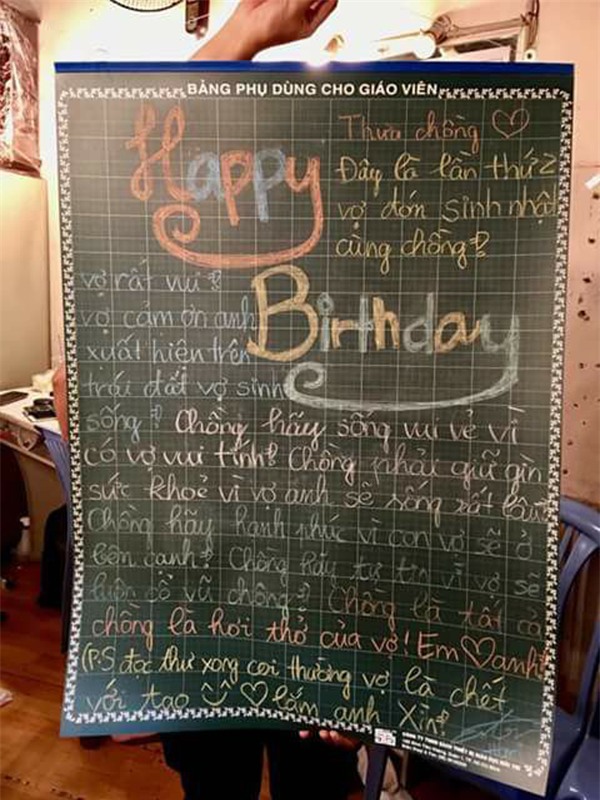 BẢNG PHỤ DÙNG CHO GIÁO VIÊN
Happy
Thưa chồng ♡
Đây là lần thứ 2
vợ đón sinh nhật
cùng chồng!
vợ rất vui!
Birthday
vợ cảm ơn anh
xuất hiện trên
trái đất vợ sinh
sống! Chồng hãy sống vui vẻ vì
có vợ vui tính! Chồng phải giữ gìn
sức khoẻ vì vợ anh sẽ sống rất lâu!
Chồng hãy hạnh phúc vì con vợ sẽ ở
bên cạnh! Chồng hãy tự tin vì vợ sẽ
luôn cổ vũ chồng! Chồng là tất cả
chồng là hơi thở của vợ! Em ♡ anh!
(P.S đọc thư xong coi thường vợ là chết
với tao ♡ lắm anh Xìn!